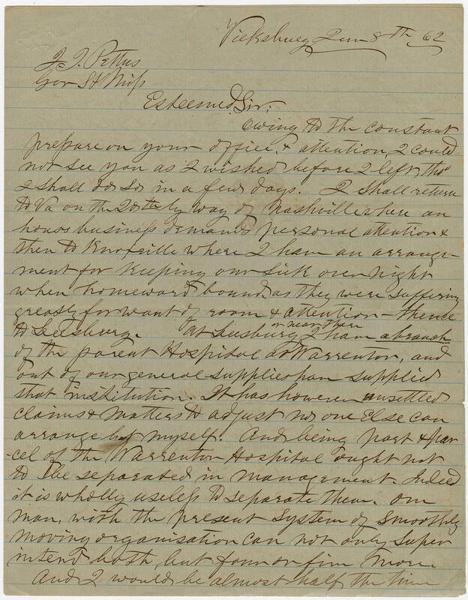 Vicksburg Jan 8th 62
J. J. Pettus
Gov St Miss
Esteemed Sir:
owing to the constant
pressure on your office & attention, I could
not see you as I wished before I left, tho
I shall do so in a few days. I shall return
to Va on the 20th by way of Nashville where an
hours business demands personal attention &
then to Knoxville where I have an arrange-
ment for keeping our sick over night
when homeward bound, as they were suffering
greatly for want of room & attention - thence
to Leesburg. At Leesburg or near there I have a branch
of the parent Hospital at Warrenton, and
out of our general supplies have supplied
that institution. It has however unsettled
claims & matters to adjust no one else can
arrange but myself. And being part & par-
-cel of the Warrenton Hospital ought not
to be separated in management. Indeed
it is wholly useless to separate them. One
man, with the present system of smoothly
moving organisation can not only super
intend both but four or five more
And I would be almost half the time